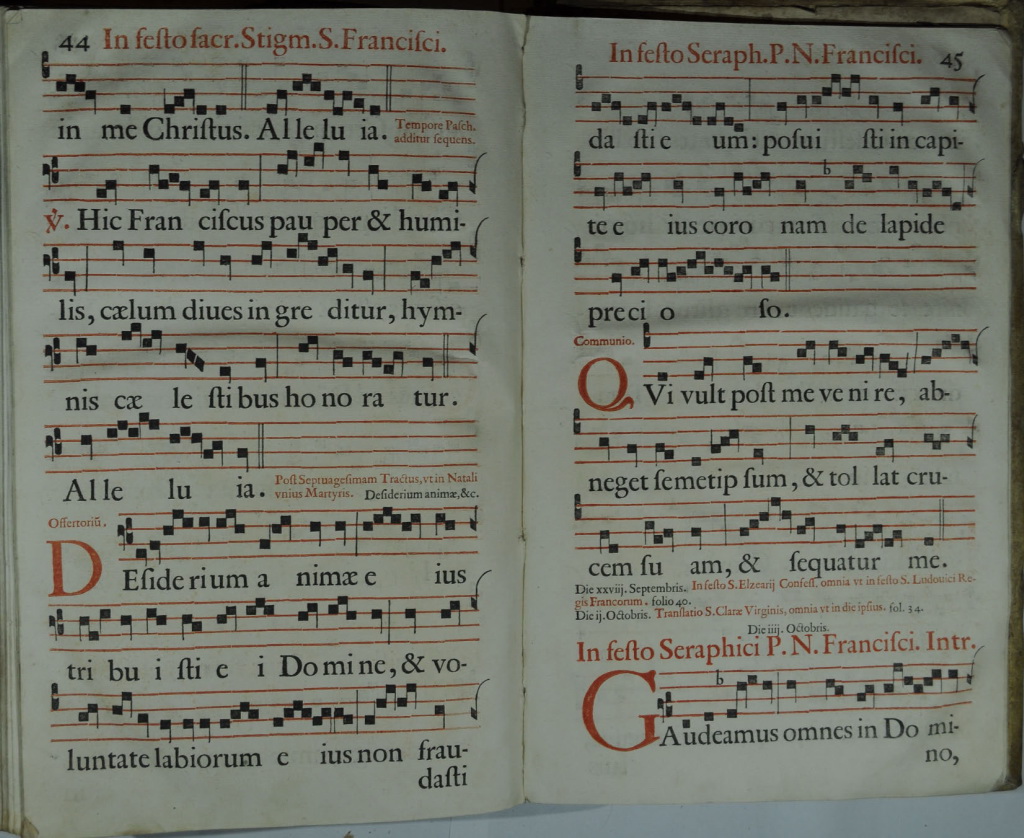 44 In feſto ſacr. Stigm. S. Franciſci.
in me Chriſtus. Al le lu ia. Tempore Paſch.
additur ſequens.
℣. Hic Fran ciſcus pau per & humi-
lis, cælum diues in gre ditur, hym-
nis cæ le ſti bus ho no ra tur.
Al le lu ia. Poſt Septuageſimam Tractus, vt in Natali
vnius Martyris. Deſiderium animæ, &c.
Offertoriũ.
DEſide rium a nimæ e ius
tri bu i ſti e i Do mi ne, & vo-
luntate labiorum e ius non frau-
daſti
In feſto Seraph. P. N. Franciſci. 45
da ſti e um: poſui ſti in capi-
te e ius coro nam de lapide
pre ci o ſo.
Communio.
QVi vult poſt me ve ni re, ab-
neget ſemetip ſum, & tol lat cru-
cem ſu am, & ſequatur me.
Die xxviij. Septembris. In feſto S. Elzearij Confeſſ. omnia vt in feſto S. Ludouici Re-
gis Francorum. folio 40.
Die ij. Octobris. Tranſlatio S. Claræ Virginis, omnia vt in die ipſius. fol. 34.
Die iiij. Octobris.
In feſto Seraphici P. N. Franciſci. Intr.
b
GAudeamus omnes in Do mi-
no,